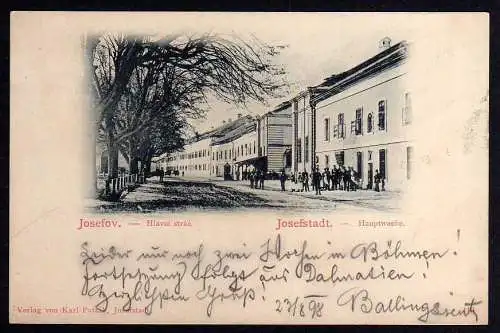 Josefov. — Hlavní stráž.
Josefstadt. — Hauptwache.
Leider nur noch zwei Wochen in Böhmen!
Fortsetzung folgt aus Dalmatien!
Herzlichen Gruß! 23/8 98
Verlag von Karl Josefstadt